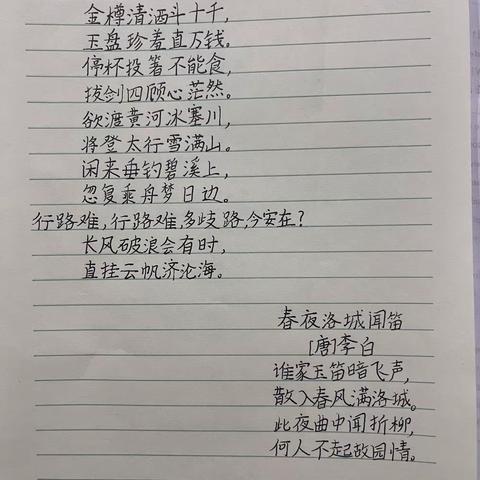 金樽清洒斗十千，
玉盘珍羞直万钱。
停杯投箸不能食，
拔剑四顾心茫然。
欲渡黄河冰塞川，
将登太行雪满山。
闲来垂钓碧溪上，
忽复乘舟梦日边。
行路难，行路难，多歧路，今安在？
长风破浪会有时，
直挂云帆济沧海。
春夜洛城闻笛
[唐]李白
谁家玉笛暗飞声，
散入春风满洛城。
此夜曲中闻折柳，
何人不起故园情。